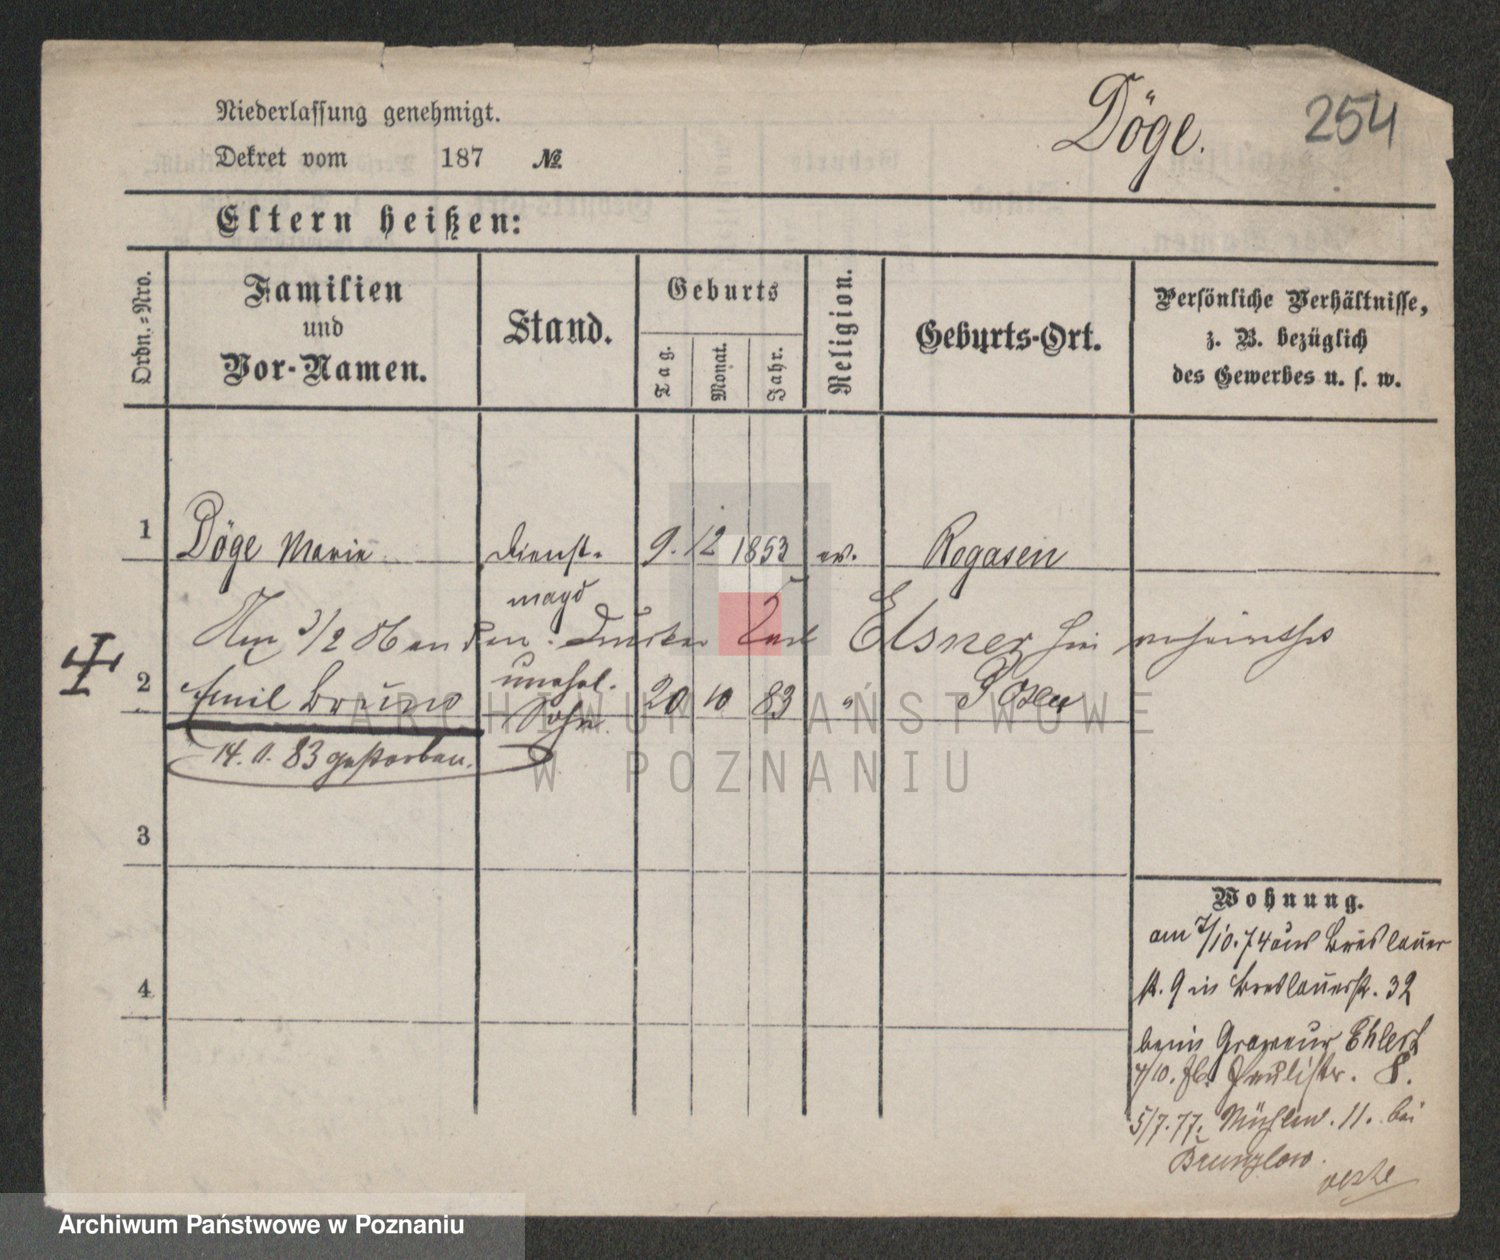 Niederlassung genehmigt.
Dekret vom 187 №
Döge.
254
Eltern heißen:
Ordn.-Nro.
Familien
und
Vor-Namen.
Stand.
Geburts
Tag.
Monat.
Jahr.
Religion.
Geburts-Ort.
Persönliche Verhältnisse,
z. B. bezüglich
des Gewerbes u. s. w.
1 Döge Marie Dienst- 9. 12 1853 ev. Rogasen
magd
Elsner
unehel.
2 Emil Bruno 20 10 83 " Posen
Sohn
14. 83 gestorben.
3
4
Wohnung.
am 7/10.74 aus Breslauer
str. 9 in Breslauerstr. 32
beim Graveur Ehlert
4/10. Paulistr. 8.
5/7.77. Mühlenstr. 11. bei
ARCHIWUM PAŃSTWOWE
W POZNANIU
Archiwum Państwowe w Poznaniu